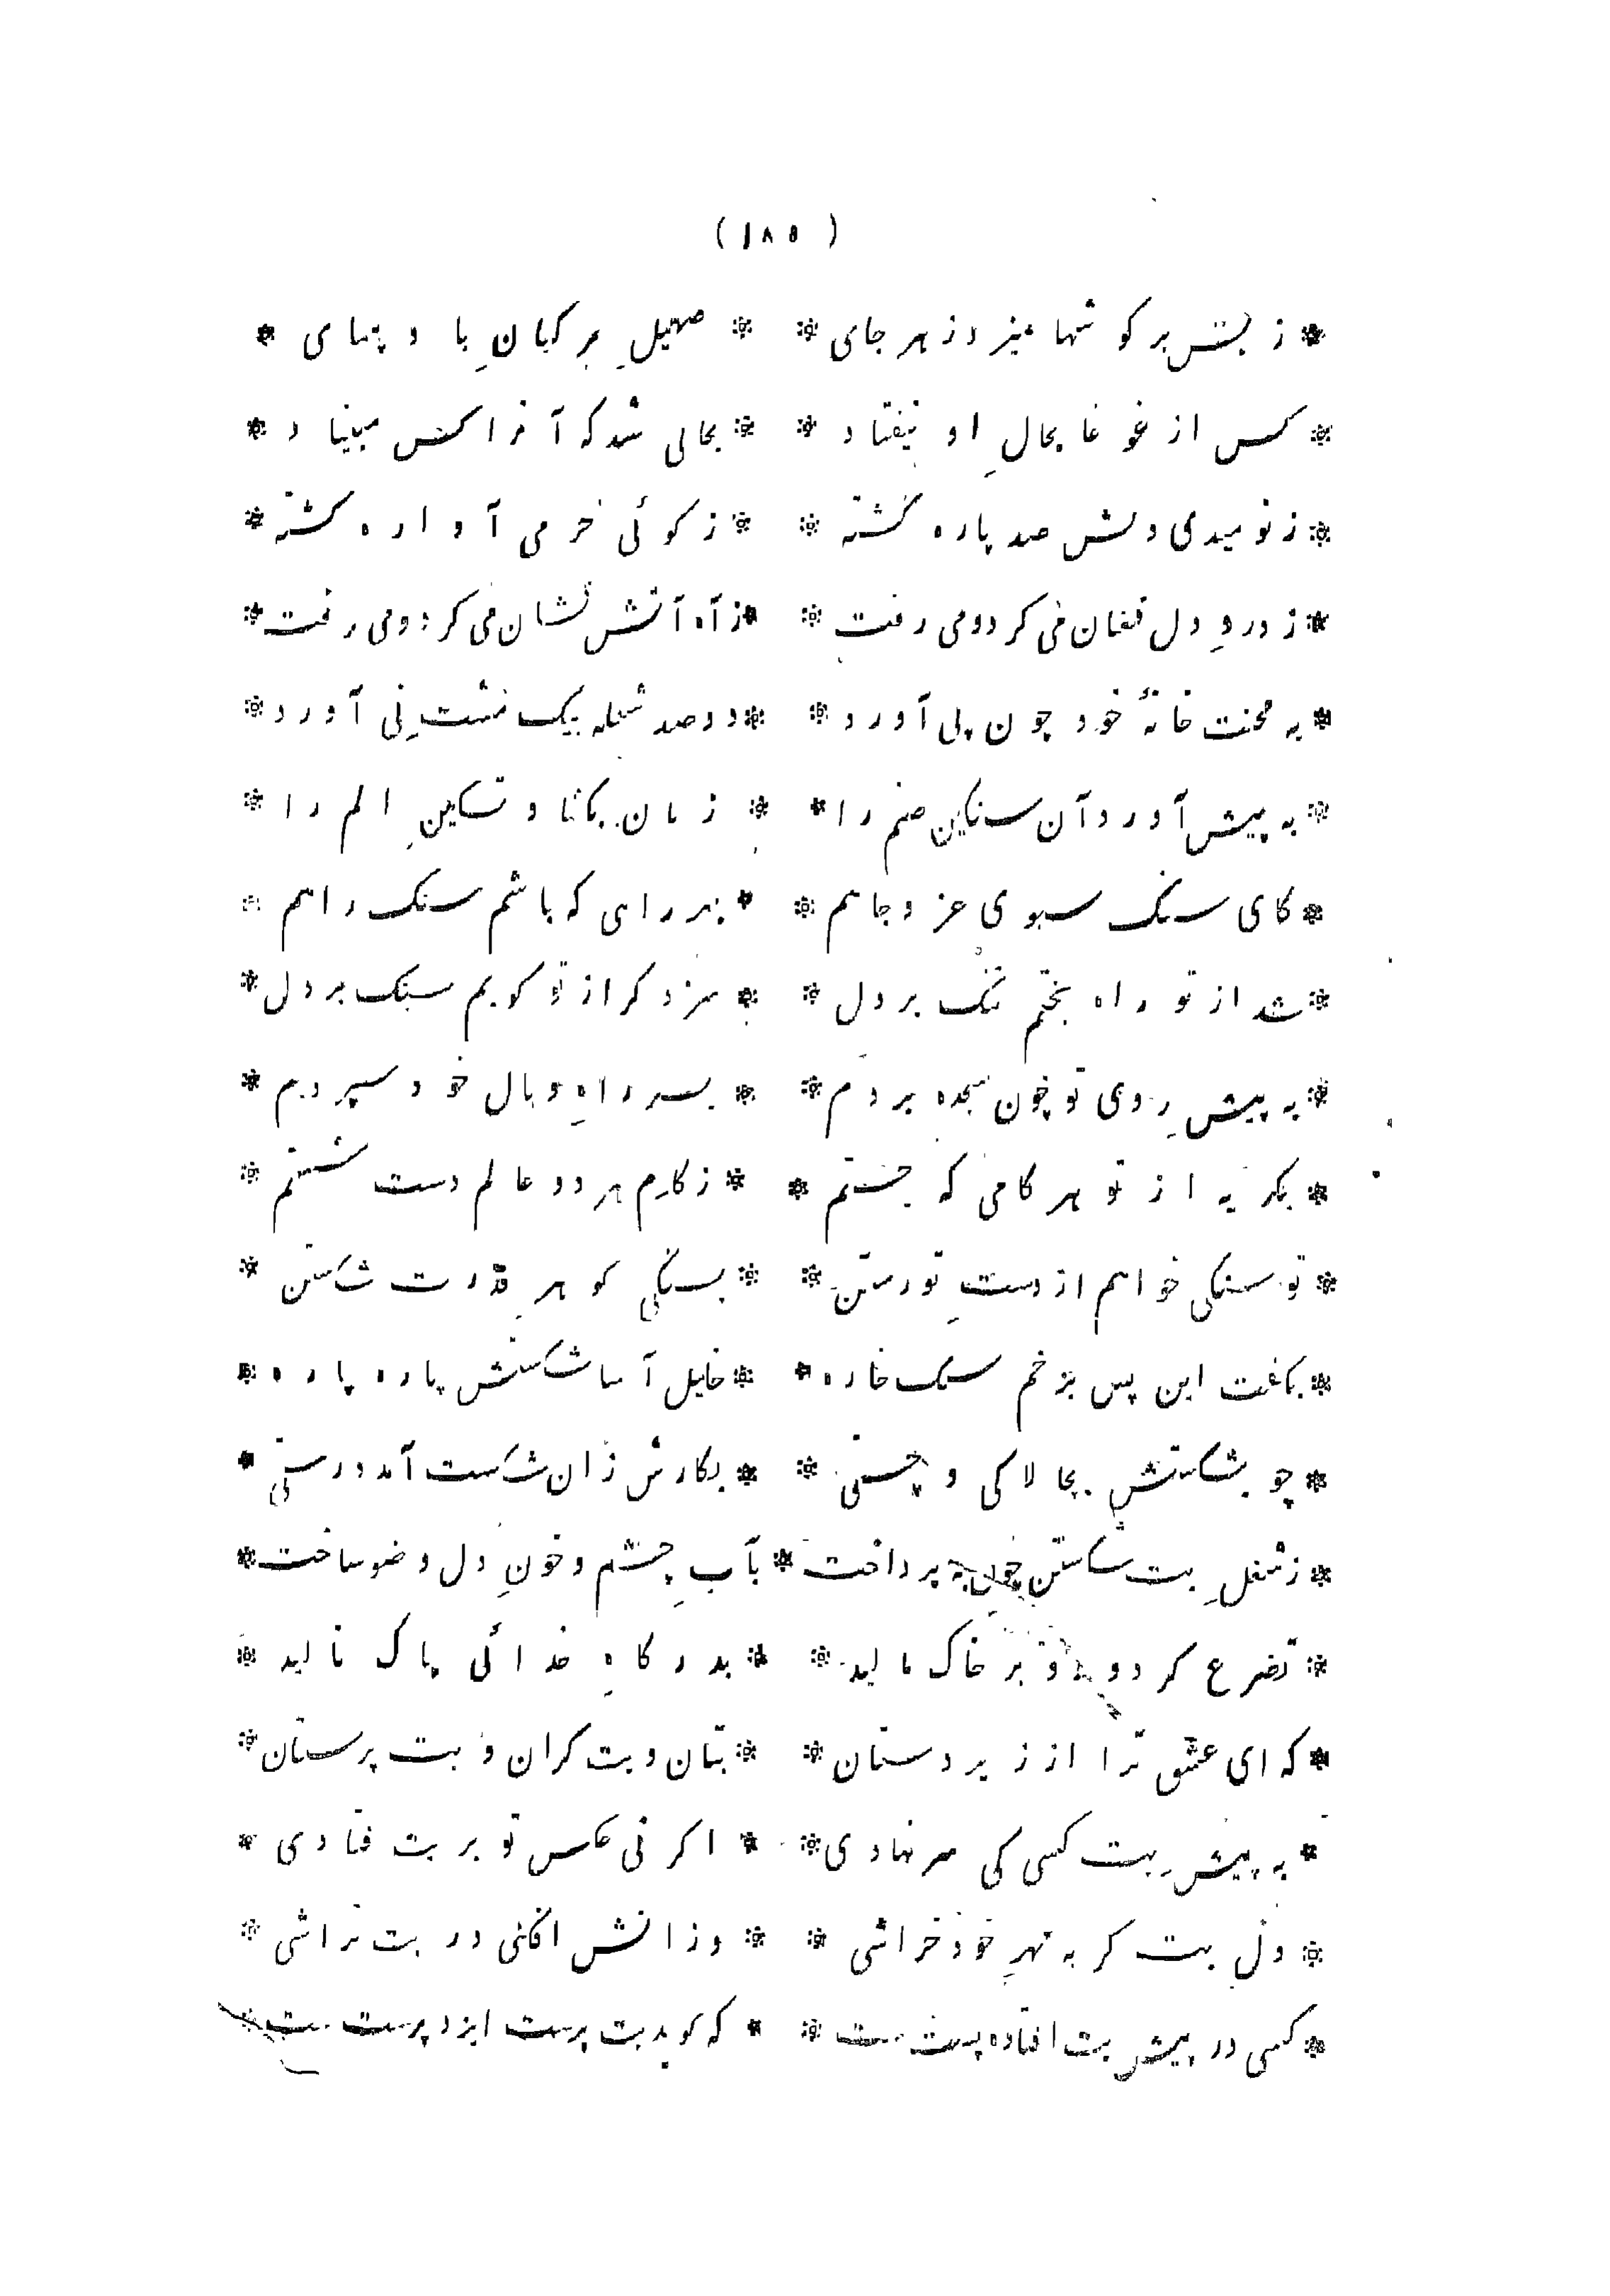 ( ۱۸۵ )
* ز بس بر گوشها میزد ز هر جای * * صهیلِ مرکبانِ باد پیمای *
* کس از غوغا بحالِ او نیفتاد * * بحالی شد که آنرا کس مبیناد *
* ز نومیدی دلش صد پاره گشته * * ز کوئی خرمی آواره گشته *
* ز دردِ دل فغان می کرد و می رفت * * ز آه آتش فشان می کرد و می رفت *
* به محنت خانهٔ خود چون پی آورد * * دو صد شعله بیک مشتِ نی آورد *
* به پیش آورد آن سنگین صنم را * * زبان بگشاد و تسکینِ الم را *
* کای سنگ سبوی عز و جاهم * * بهر راهی که باشم سنگ راهم *
* شد از تو راه بختم تنگ بر دل * * سزد گر از تو کوبم سنگ بر دل *
* به پیشِ روی تو چون سجده بردم * * بسر راهِ وبال خود سپردم *
* بگریه از تو هر کامی که جستم * * ز کارم هر دو عالم دست شستم *
* تو سنگی خواهم از دستِ تو رستن * * بسنگی گوهرِ قدرت شکستن *
* بگفت این پس بزخم سنگ خاره * * خلیل آسا شکستش پاره پاره *
* چو بشکستش بچالاکی و چستی * * بکارش زان شکست آمد درستی *
* ز شغلِ بت شکستن چون بپرداخت * بآبِ چشم و خونِ دل وضو ساخت *
* تضرع کرد و رو بر خاک مالید * * بدرگاهِ خدائی پاک نالید *
* که ای عشق ترا از زیر دستان * * بتان و بت گران و بت پرستان *
* به پیشِ بت کسی کی سر نهادی * * اگر نی عکس تو بر بت فتادی *
* دل بت گر به مهرِ خود خراشی * * وزانش افکنی در بت تراشی *
* کسی در پیش بت افتاده پست ست * * که گوید بت پرست ایزد پرست ست *